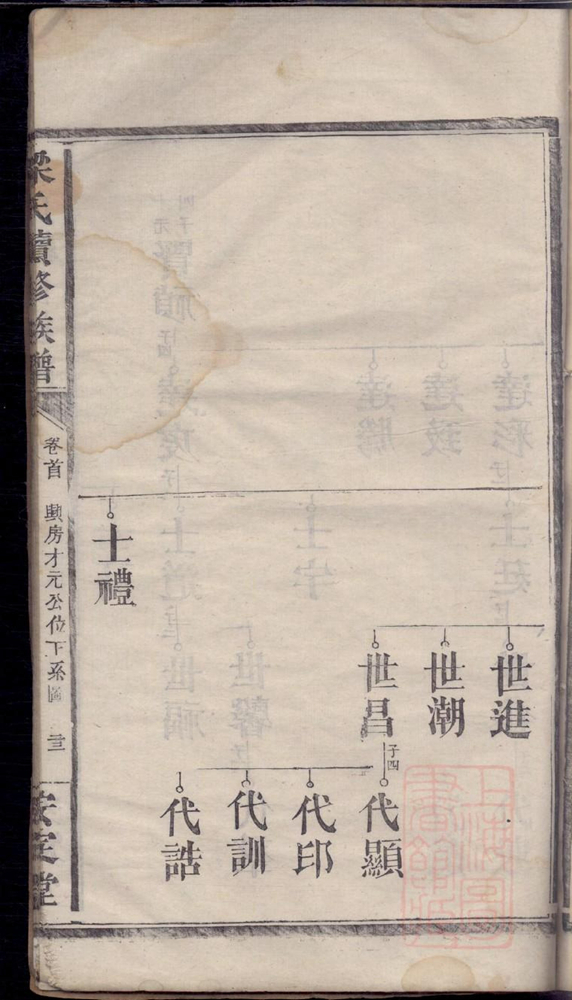 世進
世潮
世昌
子四
代顯
代印
代訓
代誥
士禮
梁氏續修族譜
卷首
才元公位下系圖
安定堂